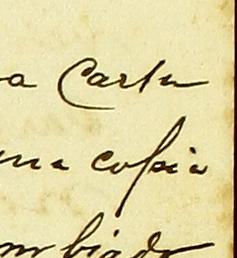 a Carta
una copia
mbiado